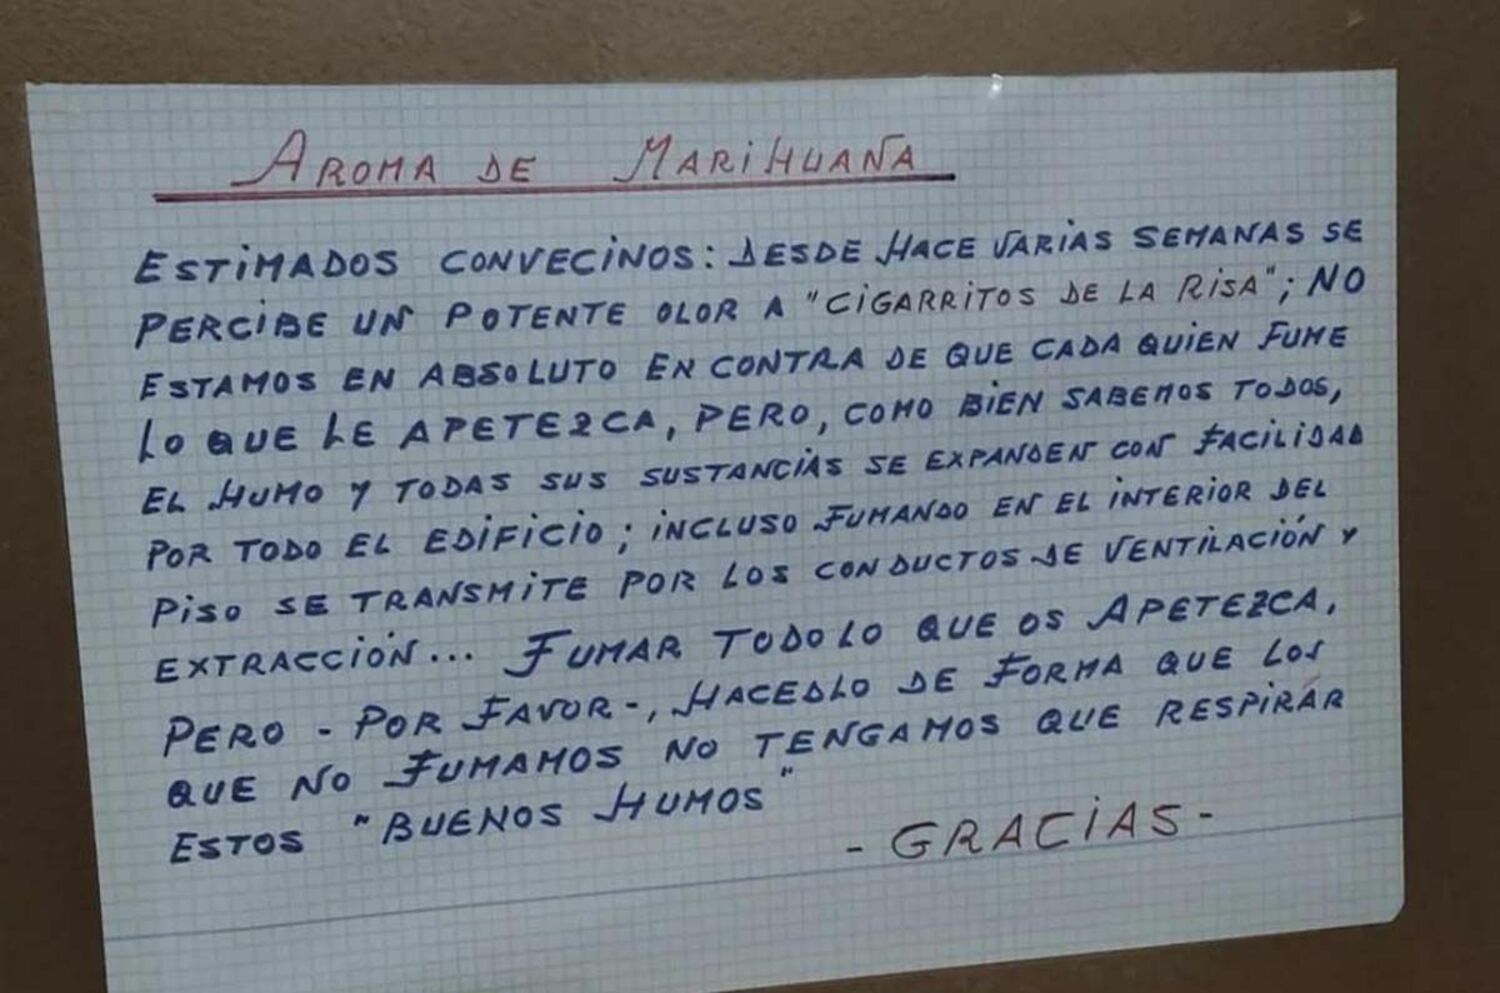 AROMA DE MARIHUAÑA
ESTIMADOS CONVECINOS: DESDE HACE VARIAS SEMANAS SE
PERCIBE UN POTENTE OLOR A "CIGARRITOS DE LA RISA"; NO
ESTAMOS EN ABSOLUTO EN CONTRA DE QUE CADA QUIEN FUME
LO QUE LE APETEZCA, PERO, COMO BIEN SABEMOS TODOS,
EL HUMO Y TODAS SUS SUSTANCIAS SE EXPANDEN CON FACILIDAD
POR TODO EL EDIFICIO; INCLUSO FUMANDO EN EL INTERIOR DEL
PISO SE TRANSMITE POR LOS CONDUCTOS DE VENTILACIÓN Y
EXTRACCIÓN... FUMAR TODO LO QUE OS APETEZCA,
PERO - POR FAVOR -, HACEDLO DE FORMA QUE LOS
QUE NO FUMAMOS NO TENGAMOS QUE RESPIRÁR
ESTOS "BUENOS HUMOS"
- GRACIAS -